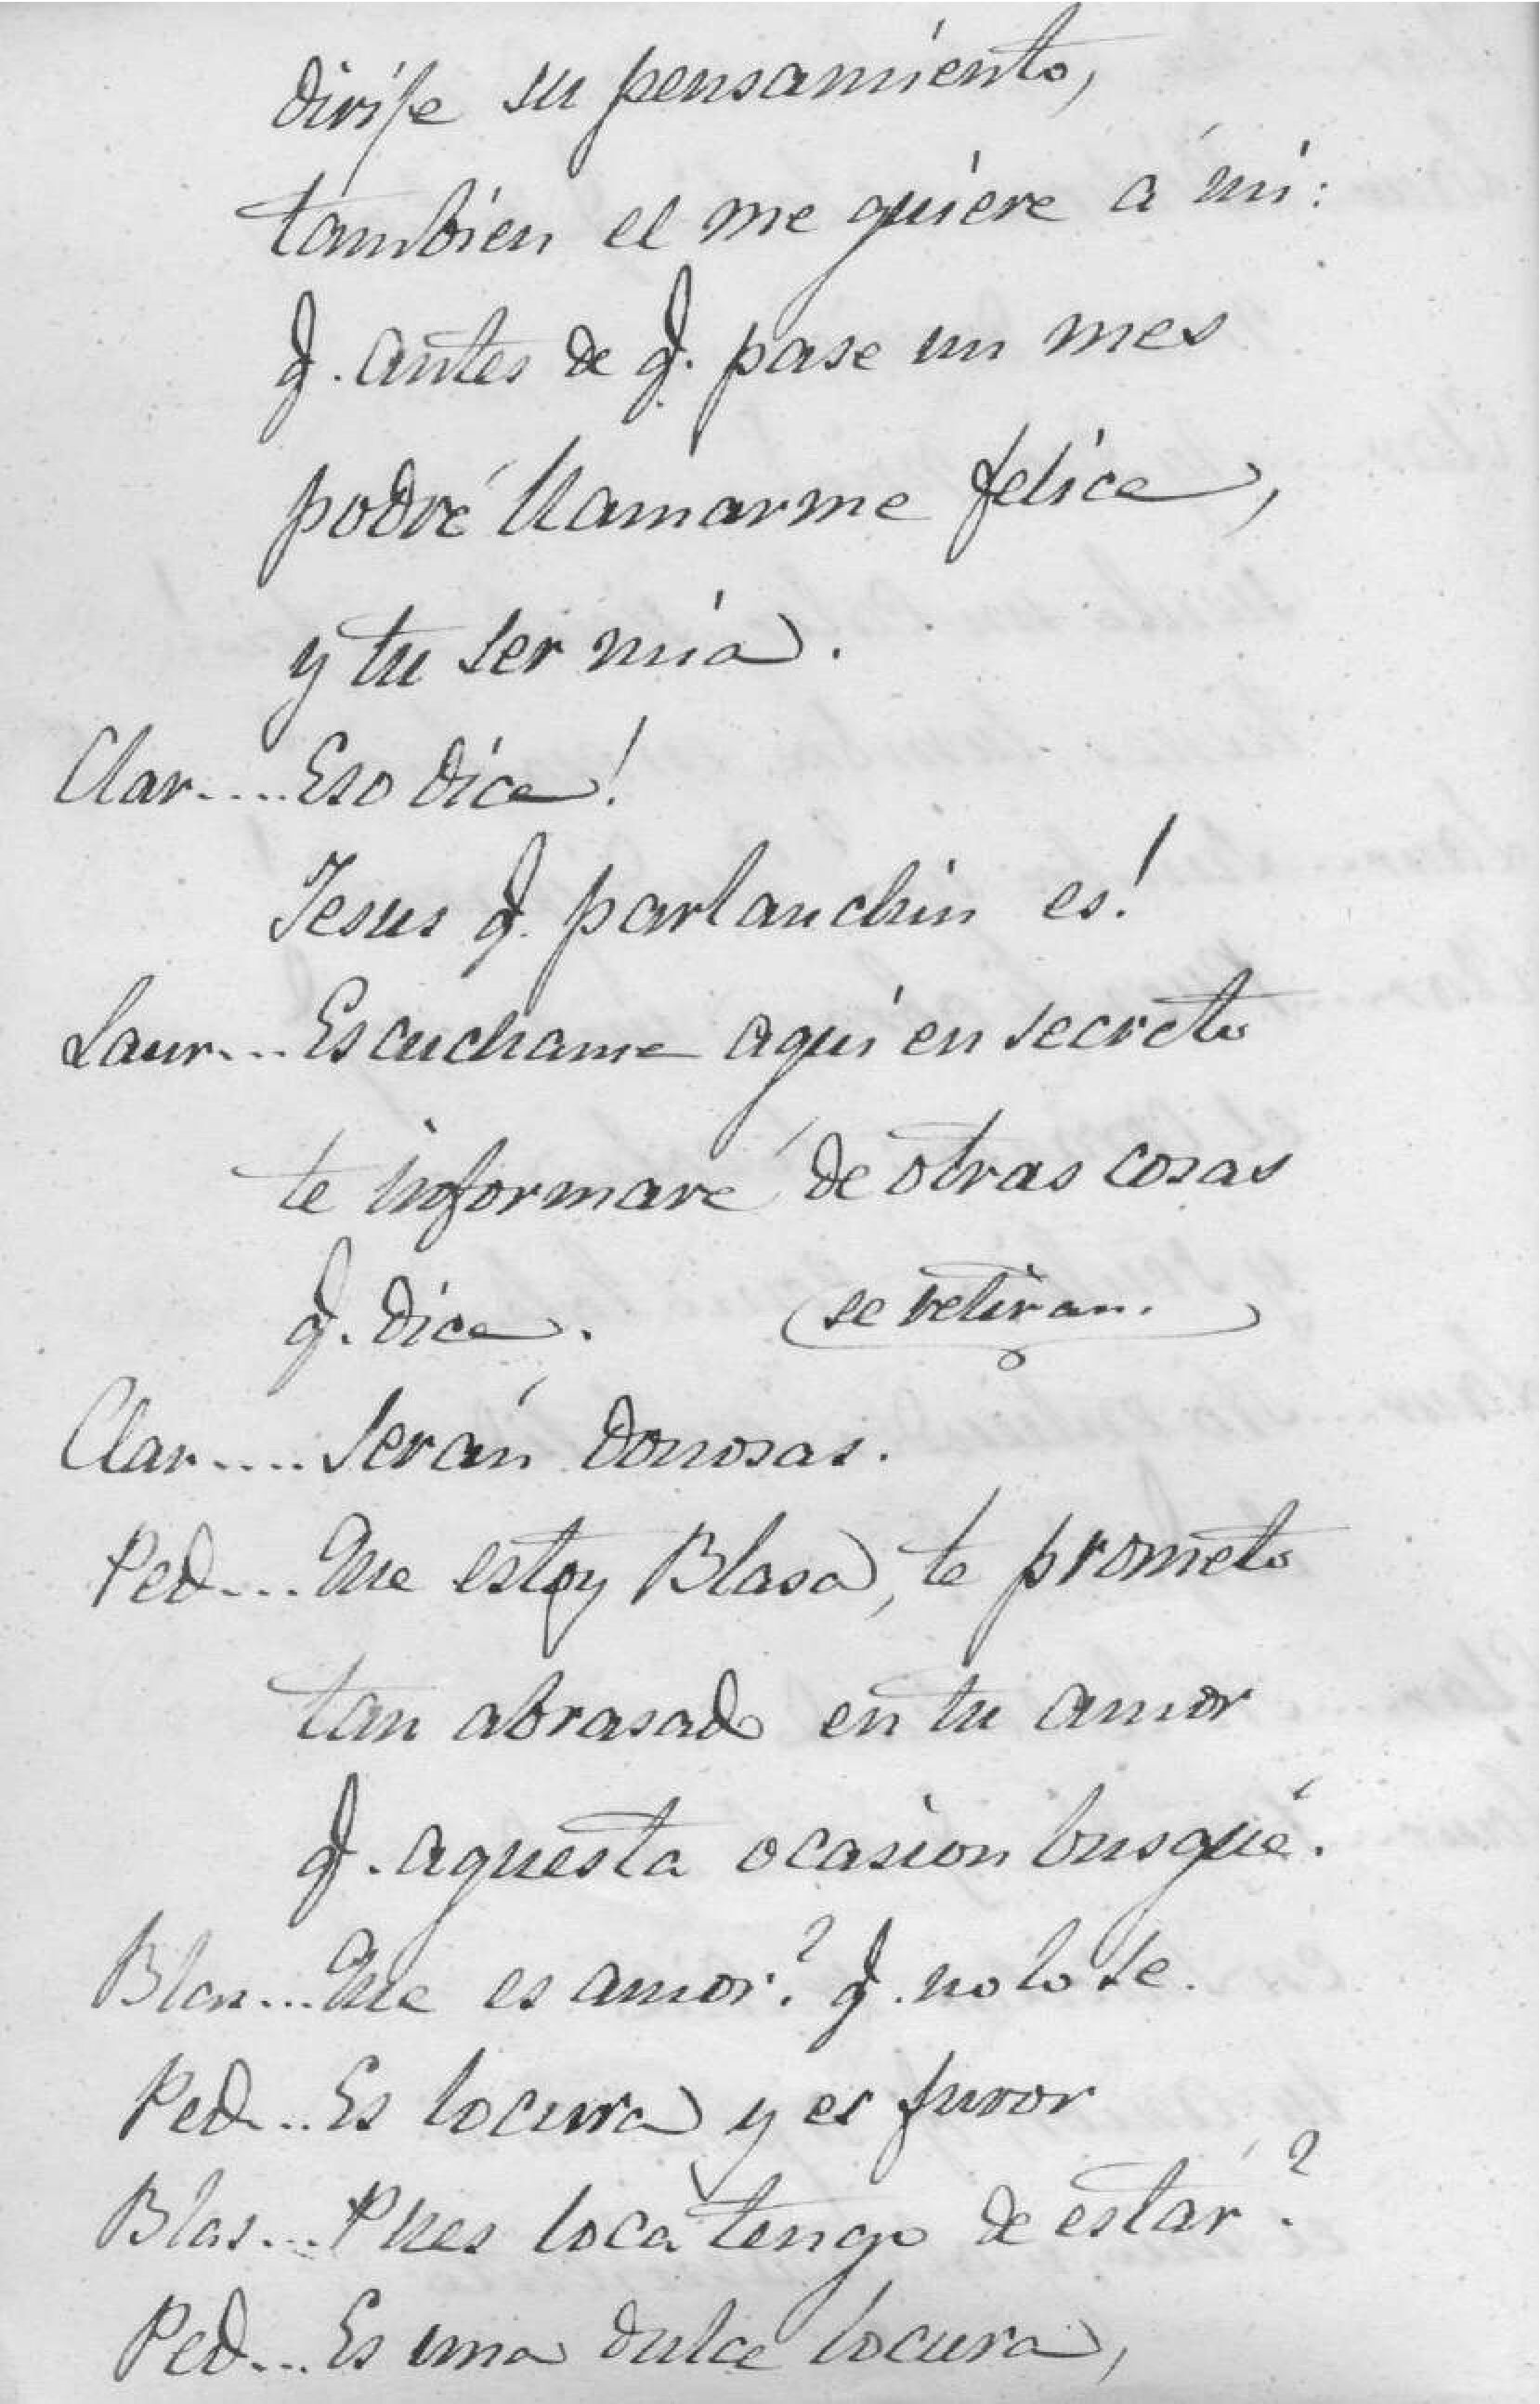 dirije su pensamiento,
tambien el me quiere á mi:
q. antes de q. pase un mes
podré llamarme felice,
y tu ser mia.
Clar.... Eso dice!
Jesus q. parlanchin es!
Laur... Escuchame aqui en secreto
te informaré de otras cosas
q. dice. (se retiran.)
Clar.... Serán donosas.
Ped.... Que estoy Blasa, te prometo
tan abrasado en tu amor
q. aquesta ocasion busqué.
Blas... Que es amor? q. no lo se.
Ped... Es locura y es furor
Blas... Pues loca tengo de estár?
Ped... Es una dulce locura,